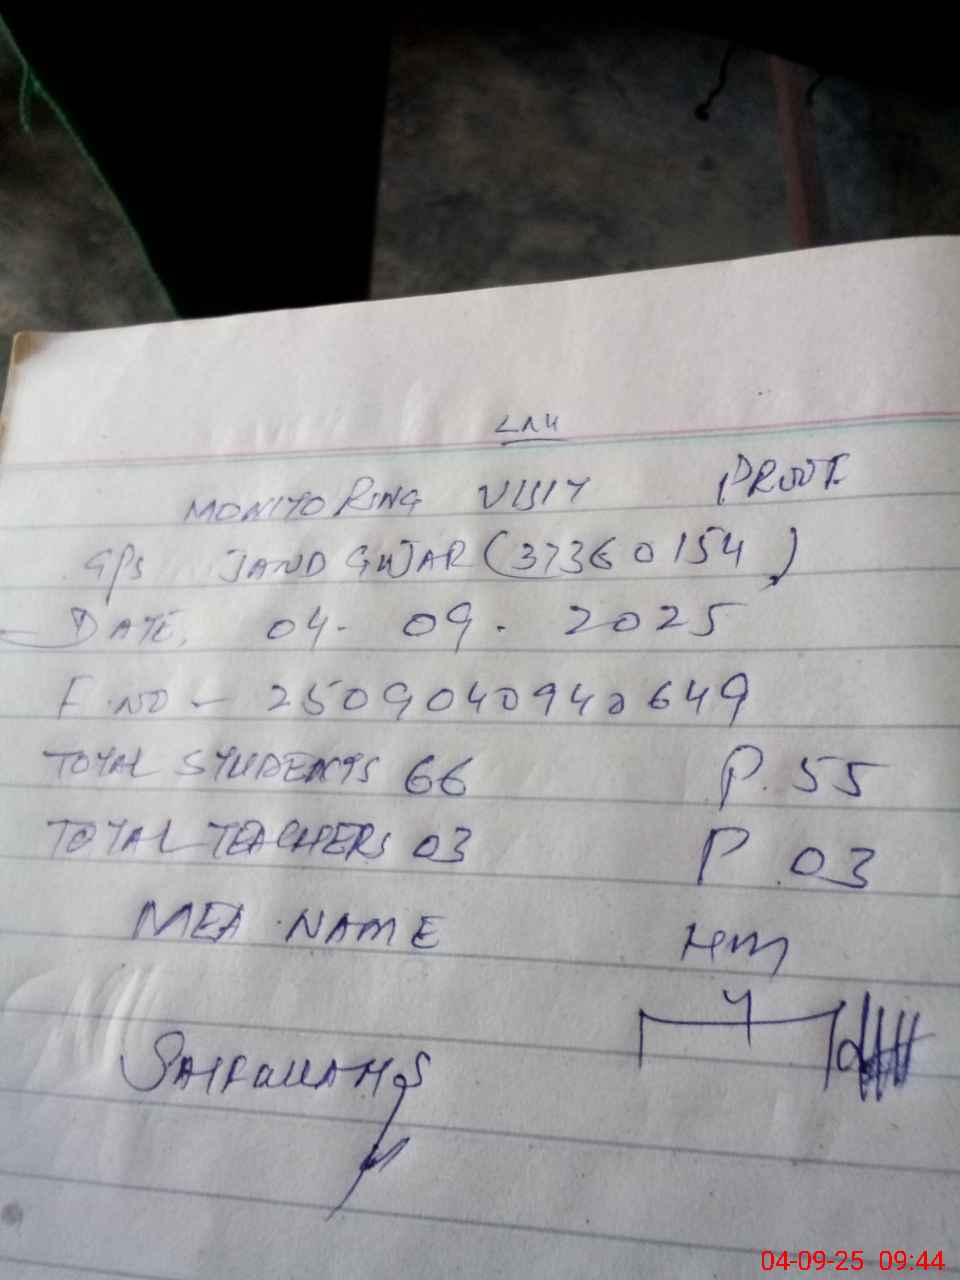 MONITORING VISIT PROOF
GPS JAND GUJAR (37360154)
DATE. 04. 09. 2025
F.NO - 2509040942649
TOTAL STUDENTS 66 P. 55
TOTAL TEACHERS 03 P. 03
MEA. NAME HM
SAIFULLAH
04-09-25 09:44